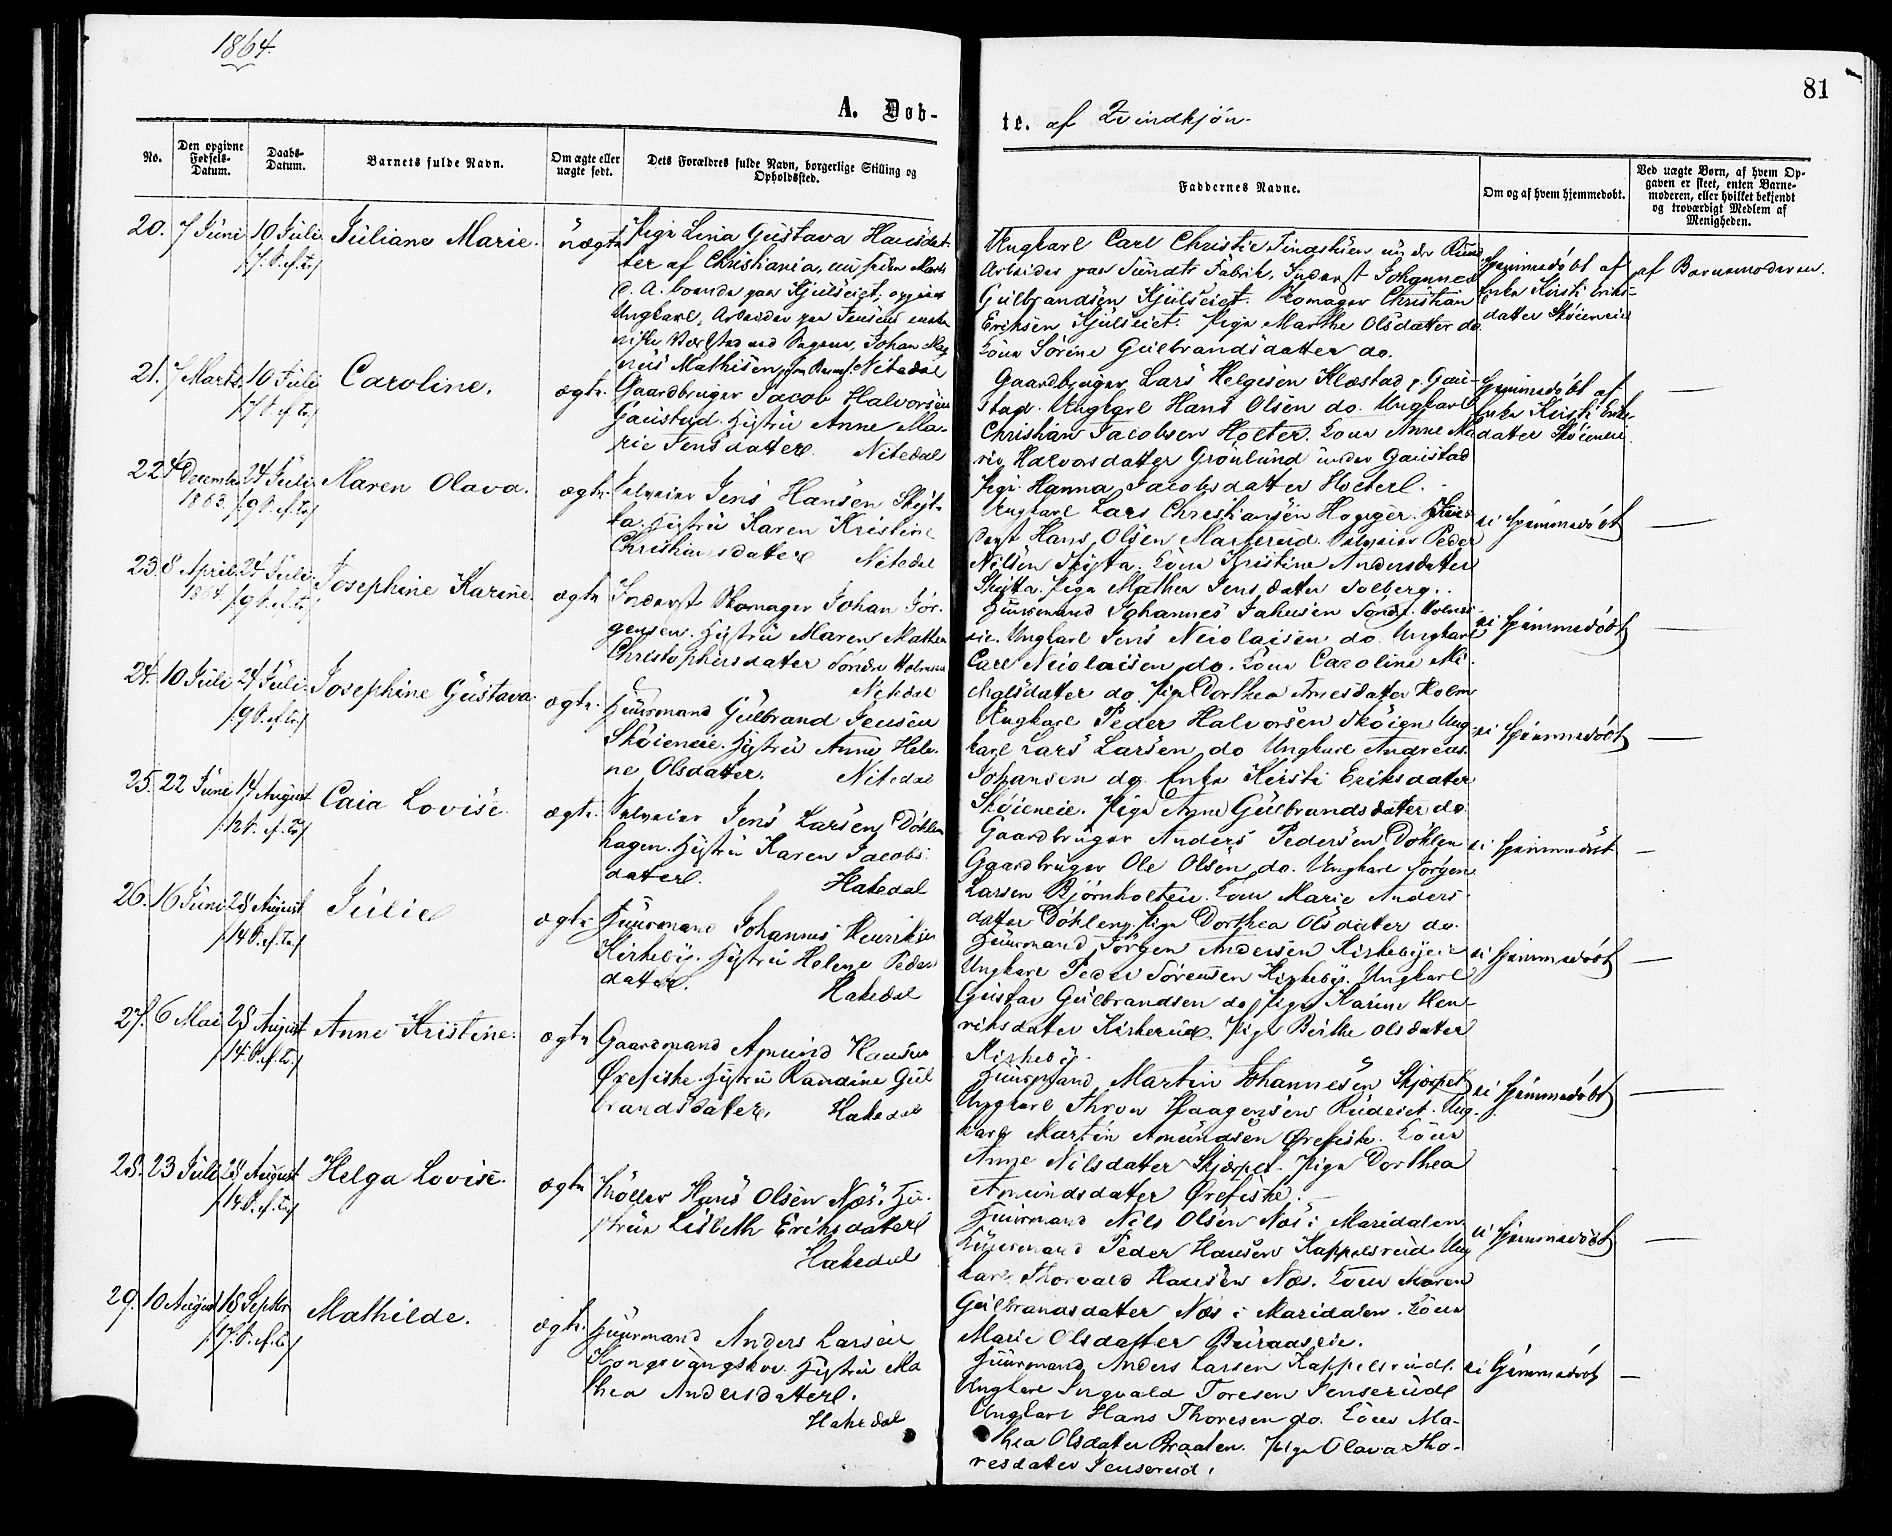 1864.
81
A. Døb-
te. af Qvindkjøn.
No.
Den opgivne Fødsels-Datum.
Daabs-Datum.
Barnets fulde Navn.
Om ægte eller uægte født.
Dets Forældres fulde Navn, borgerlige Stilling og Opholdssted.
Faddernes Navne.
Om og af hvem hjemmedøbt.
Ved uægte Børn, af hvem Opgaven er skeet, enten Barnemoderen, eller hvilket bekjendt og troværdigt Medlem af Menigheden.
20. 7 Juni 10 Juli Juliane Marie. uægte
7. S. ef. Tr.
Pige Lina Gustava Hansdat-
ter af Christiania, nu siden Marts
d. A. boende paa Kjulseiet, opgiven
Ungkarl, Arbeider paa Jensens
Værksted ved Vagen, Johan Mag
nus Mathisen, Nitedal
Ungkarl Carl Christie
Arbeider paa Sundts Fabrik, Inderst Johannes
Gulbrandsen Kjulseiet. Skomager Christian
Eriksen Kjulseiet. Pige Marthe Olsdatter do.
Kone Sørine Gulbrandsdatter do.
Hjemmedøbt af
Enke Kirsti Eriks-
datter Skøieneie
af Barnemoderen.
21. 7 Marts 10 Juli Caroline. ægte.
7 S. ef. Tr.
Gaardbruger Jacob Halvorsen
Gaustad. Hustru Anne Ma-
rie Jensdatter. Nitedal
Gaardbruger Lars Helgesen Klæstad p. Gau-
stad. Ungkarl Hans Olsen do. Ungkarl
Christian Jacobsen Holter. Kone Anne Ma
rie Halvorsdatter Grønlund under Gaustad
Pige Hanna Jacobsdatter Holter.
Hjemmedøbt af
Enke Kirsti Eriks
datter Skøieneie
22. 4 December 24 Juli Maren Olava. ægte.
1863. 9 S. ef. Tr.
Selveier Jens Hansen Skyt-
ta. Hustru Karen Kristine
Christiansdatter Nitedal
Ungkarl Lars Christiansen Hogger.
Hans Olsen Maslerud. Selveier Peder
Nilsen Skytta. Kone Kristine Andersdatter
Skytta. Pige Mathea Jensdatter Solberg.
ei hjemmedøbt
23. 8 April 24 Juli Josephine Karine. ægte
1864. 9 S. ef. Tr.
Inderst Skomager Johan Jør-
gensen. Hustru Maren Mathea
Christophersdatter Søndre Holmen
Nitedal
Huusmand Johannes Jahnsen Søndr. Holmen
eie. Ungkarl Jens Nicolaisen do. Ungkarl
Carl Nicolaisen do. Kone Caroline Mi-
chalsdatter do. Pige Dorthea Arnesdatter Holm
ei hjemmedøbt
24. 10 Juli 24 Juli Josephine Gustava. ægte.
9 S. ef. Tr.
Huusmand Gulbrand Jensen
Skøieneie. Hustru Anne Hele-
ne Olsdatter. Nitedal
Ungkarl Peder Halvorsen Skøien Ung-
karl Lars Larsen do Ungkarl Andreas
Johansen do. Enke Kirsti Eriksdatter
Skøieneie. Pige Anne Gulbrandsdatter do.
ei hjemmedøbt
25. 22 Juni 14 August Caia Lovise. ægte.
12 S. ef. Tr.
Selveier Jens Larsen Døhlen
hagen. Hustru Karen Jacobs-
datter. Hakedal
Gaardbruger Anders Pedersen Døhlen
Gaardbruger Ole Olsen do. Ungkarl Jørgen
Larsen Bjørnholten. Kone Marie Anders-
datter Døhlen, Pige Dorthea Olsdatter do.
ei hjemmedøbt
26. 16 Juni 28 August Julie ægte
14 S. ef. Tr.
Huusmand Johannes Henriksen
Kirkeby. Hustru Helene Peders
datter. Hakedal
Huusmand Jørgen Andersen Kirkebyeie
Ungkarl Peder Sørensen Kirkeby. Ungkarl
Gustav Gulbrandsen do. Pige Karine Hen-
riksdatter Kirkerud. Pige Berthe Olsdatter
Kirkeby.
ei hjemmedøbt
27. 6 Mai 28 August Anne Kristine. ægte
14. S. ef. Tr.
Gaardmand Amund Hansen
Ørefiske. Hustru Randine Gul
brandsdatter. Hakedal
Huusmand Martin Johannesen Skjærpet
Ungkarl Thron Haagensen Rudeiet. Ung-
karl Martin Amundsen Ørefiske. Kone
Anne Nilsdatter Skjærpet. Pige Dorthea
Amundsdatter Ørefiske.
ei hjemmedøbt
28. 23 Juli 28 August Helga Lovise. ægte
14 S. ef. Tr.
Møller Hans Olsen Næs. Hu-
strue Lisbeth Eriksdatter
Hakedal
Huusmand Nils Olsen Næs i Maridalen
Huusmand Peder Hansen Kappelsrud. Ung
karl Thorvald Hansen Næs. Kone Maren
Gulbrandsdatter Næs i Maridalen. Kone
Marie Olsdatter
ei hjemmedøbt
29. 10 August 18 Septbr Mathilde. ægte.
17. S. ef. Tr.
Huusmand Anders Larsen
Kongsvangskov. Hustru Ma
thea Andersdatter.
Hakedal
Huusmand Anders Larsen Kappelsrud.
Ungkarl Ingvald Toresen Jenserud
Ungkarl Hans Thoresen do. Kone Ma-
thea Olsdatter Braaten. Pige Olava Tho-
resdatter Jenserud.
ei hjemmedøbt